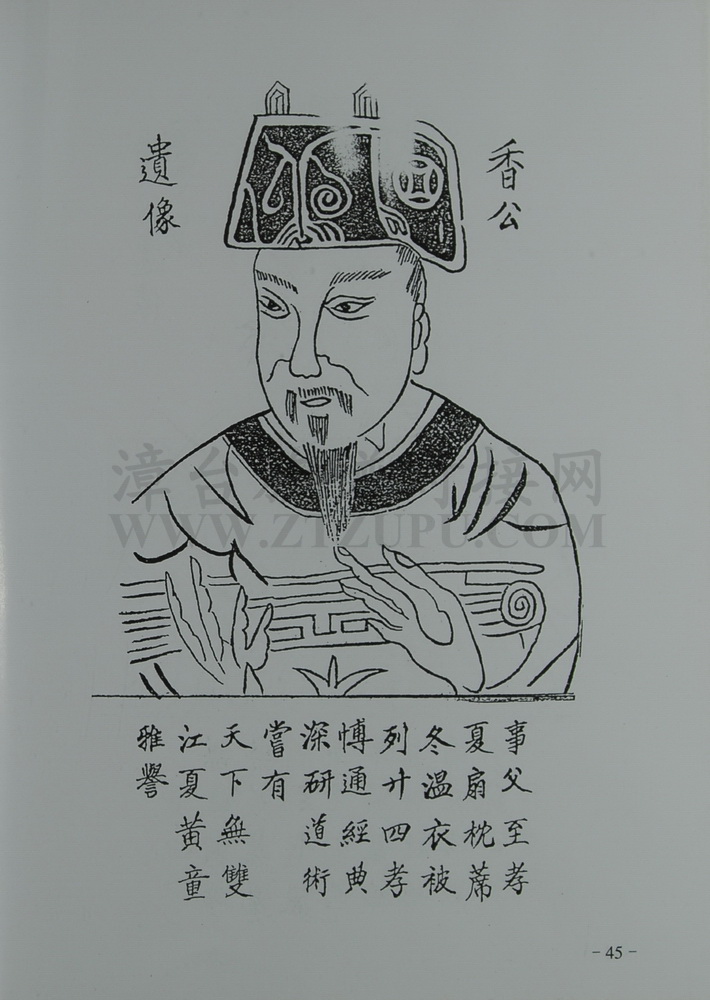 香公
遺像
事父至孝
夏扇枕蓆
冬温衣被
列廿四孝
博通經典
深研道術
嘗有
天下無雙
江夏黄童
雅譽
WWW.ZTZUPU.COM
-45-